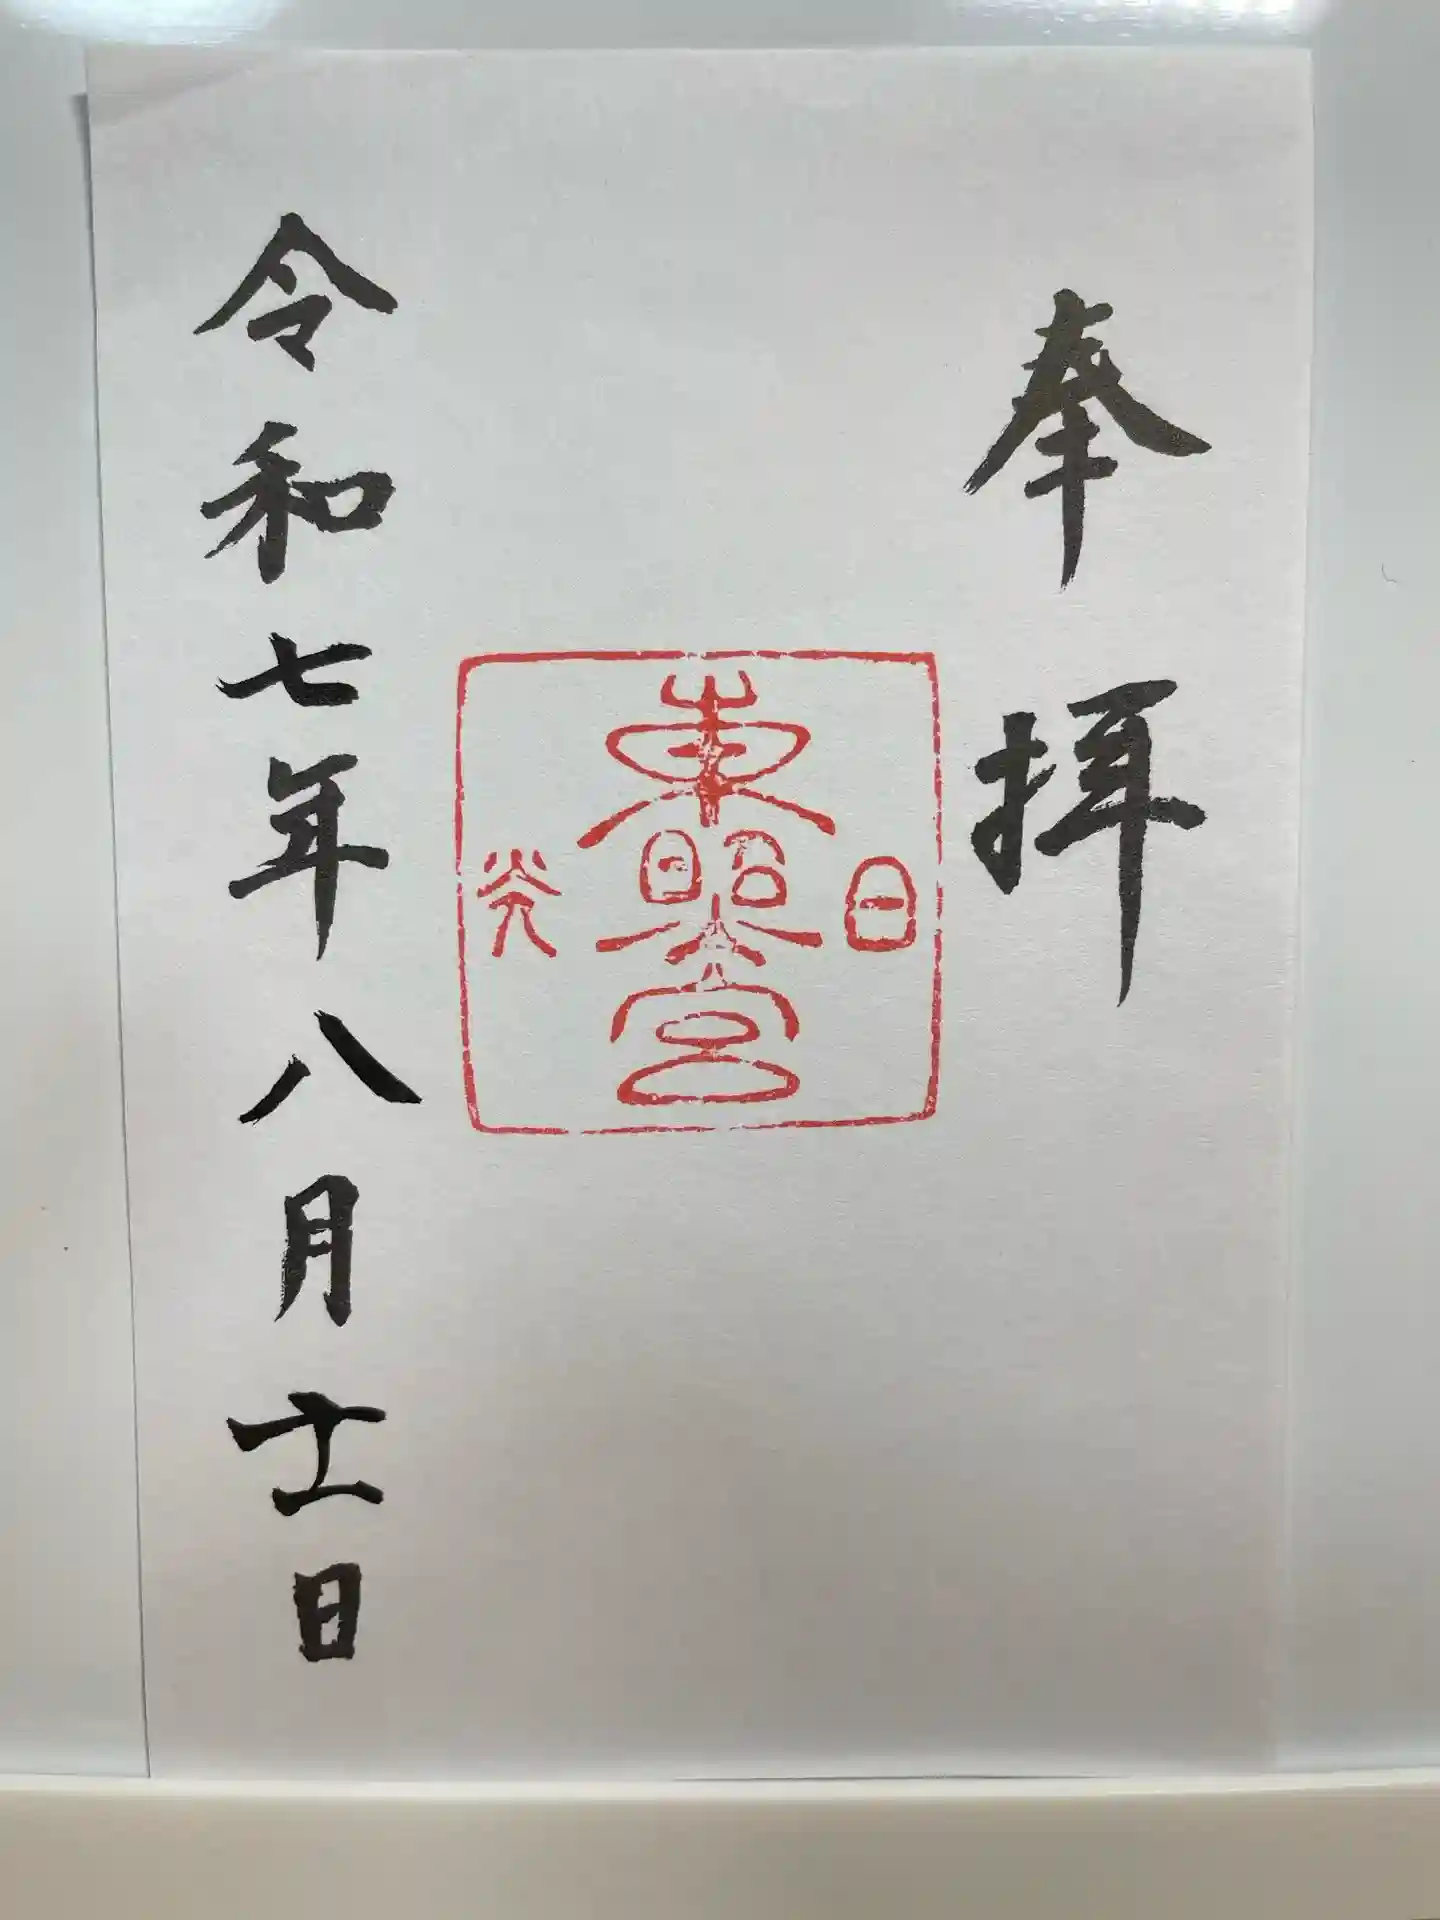 奉拝
日光
東照宮
令和七年八月十一日